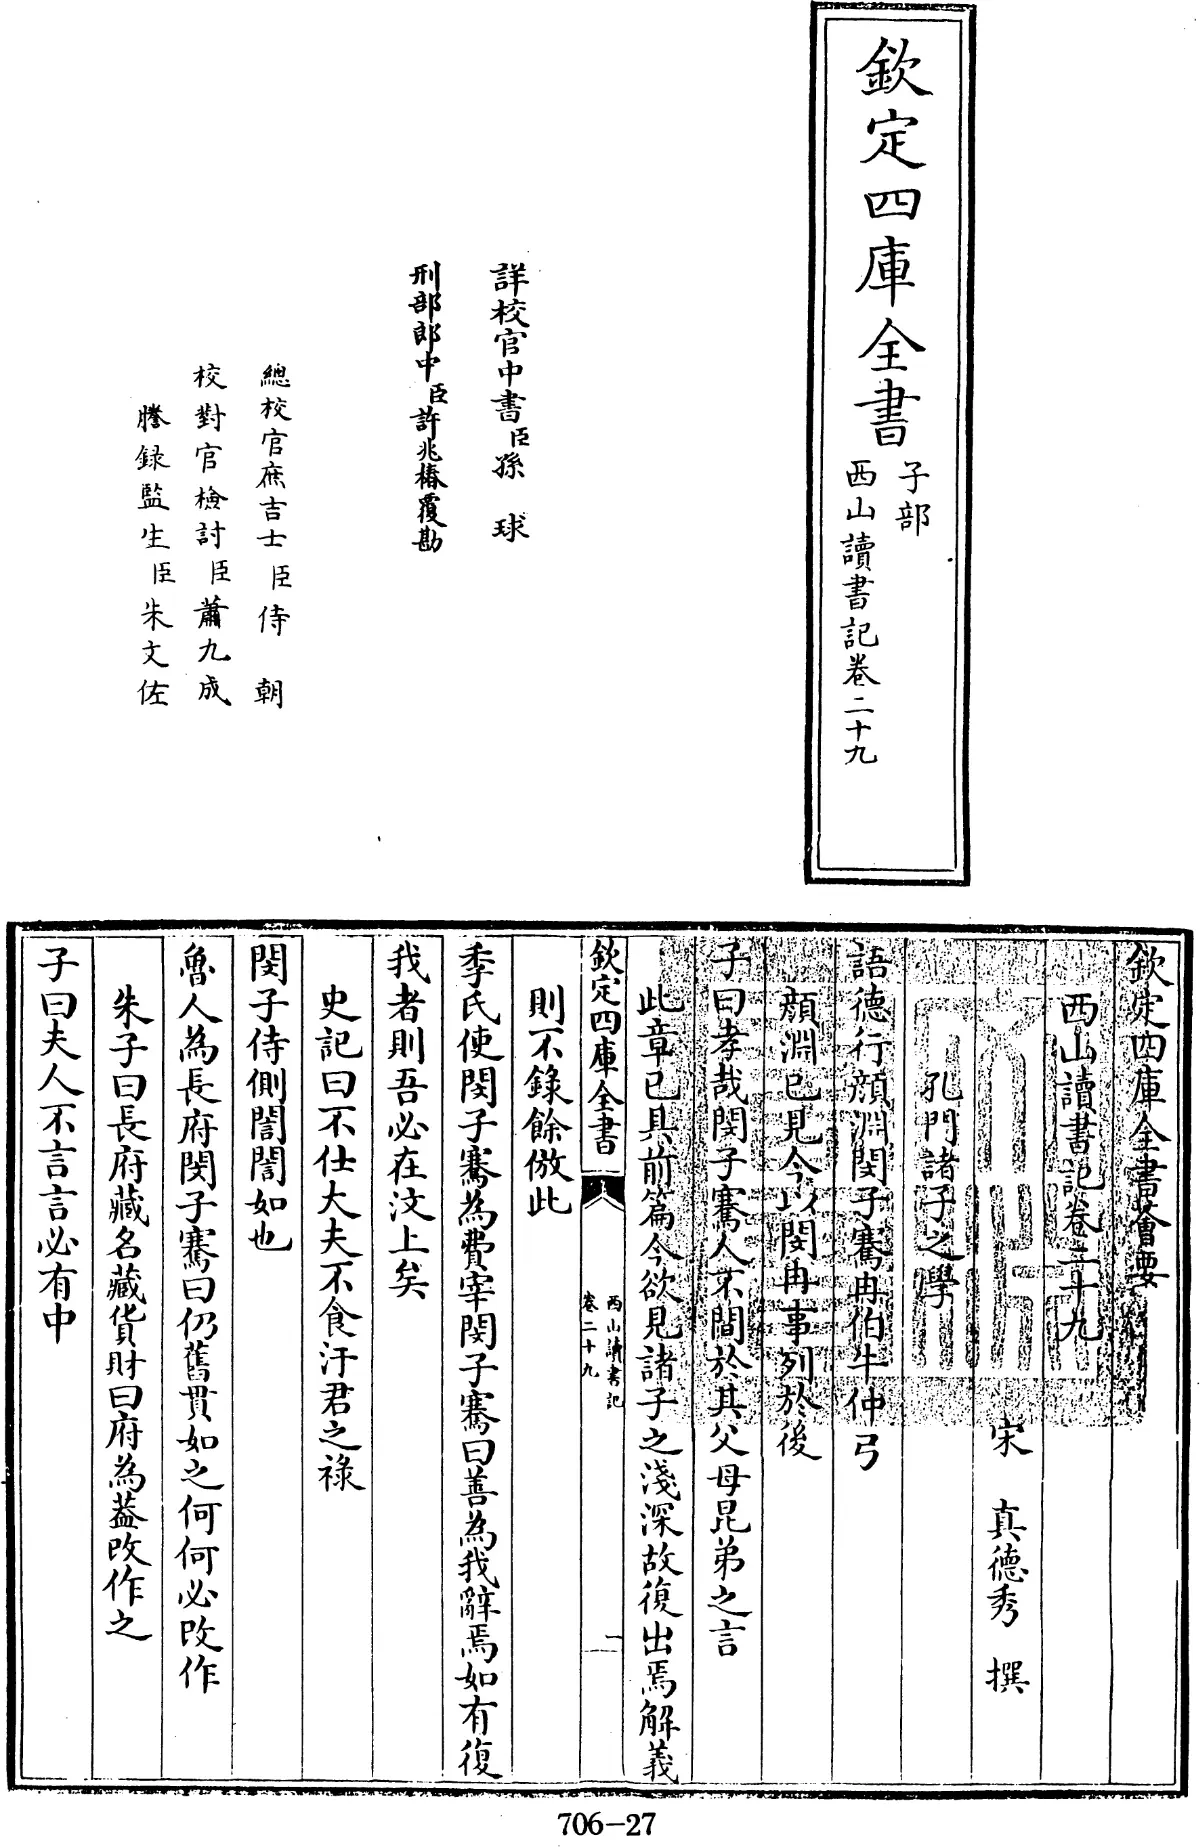 欽定四庫全書
子部
西山讀書記卷二十九
詳校官中書臣孫球
刑部郎中臣許兆椿覆勘
總校官庶吉士臣侍朝
校對官檢討臣蕭九成
謄録監生臣朱文佐
欽定四庫全書薈要
西山讀書記卷二十九
宋 真德秀 撰
孔門諸子之學
語德行顔淵閔子騫冉伯牛仲弓
顔淵已見今以閔冉事列於後
子曰孝哉閔子騫人不間於其父母昆弟之言
此章已具前篇今欲見諸子之淺深故復出焉解義
欽定四庫全書
西山讀書記
卷二十九
一
則不錄餘倣此
季氏使閔子騫為費宰閔子騫曰善為我辭焉如有復
我者則吾必在汶上矣
史記曰不仕大夫不食汙君之祿
閔子侍側誾誾如也
魯人為長府閔子騫曰仍舊貫如之何何必改作
朱子曰長府藏名藏貨財曰府為葢改作之
子曰夫人不言言必有中
706-27